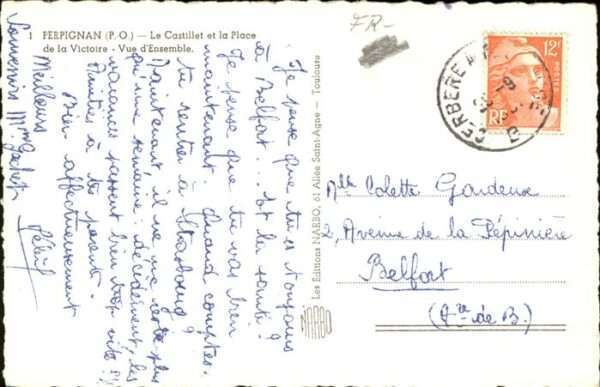 1 PERPIGNAN (P.O.) — Le Castillet et la Place
de la Victoire - Vue d'Ensemble.
FR-
12F
RF
CERBERE
Je pense que tu es toujours
à Belfort... et la santé ?
Je pense que tu vas bien
maintenant. Quand comptes-
tu rentrer à Strasbourg ?
Maintenant il ne me reste plus
qu'une semaine : décidément, les
vacances passent bien trop vite !!
Amitiés à tes parents.
Bien affectueusement
Meilleurs
Souvenirs
Les Editions NARBO, 61 Allée Saint-Agne — Toulouse
NARBO
Mlle Colette Gardeux
2, Avenue de la Pépinière
Belfort
(Tre de B.)